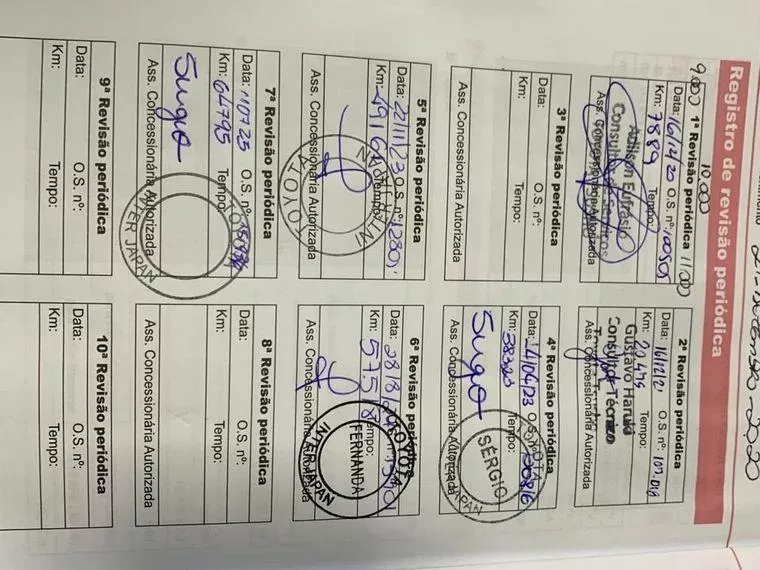 Registro de revisão periódica
9.000 10.000 11.000
1ª Revisão periódica
Data: 16/12/20 O.S. nº: 100505
Km: 7889 Tempo:
Adilson Eufrasio
Consultor de Serviços
Ass. Concessionária Autorizada
2ª Revisão periódica
Data: 16/12/21 O.S. nº:
Km: 20.479 Tempo:
Gustavo
Consultor Técnico
Ass. Concessionária Autorizada
3ª Revisão periódica
Data: O.S. nº:
Km: Tempo:
Ass. Concessionária Autorizada
4ª Revisão periódica
Data: O.S.
Km: 38323 Tempo:
Ass. Concessionária Autorizada
TOYOTA
SÉRGIO
INTER JAPAN
5ª Revisão periódica
Data: 22/11/23 O.S. nº:
Km: Tempo:
Ass. Concessionária Autorizada
TOYOTA
6ª Revisão periódica
Data:
Km: Tempo:
Ass. Concessionária Autorizada
TOYOTA
FERNANDA
INTER JAPAN
7ª Revisão periódica
Data: O.S. nº:
Km: 64795 Tempo:
Ass. Concessionária Autorizada
TOYOTA
INTER JAPAN
8ª Revisão periódica
Data: O.S. nº:
Km: Tempo:
Ass. Concessionária Autorizada
9ª Revisão periódica
Data: O.S. nº:
Km: Tempo:
10ª Revisão periódica
Data: O.S. nº:
Km: Tempo: